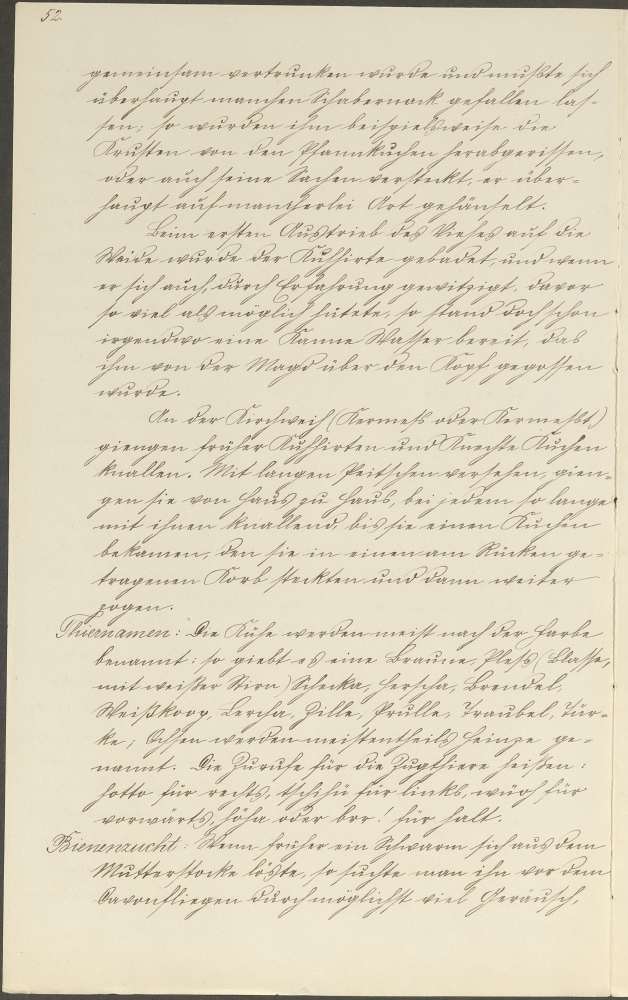 52.
gemeinsam vertrunken wurde und mußte sich
überhaupt manchen Schabernack gefallen las-
sen; so wurden ihm beispielsweise die
Krusten von den Pfannkuchen herabgerissen,
oder auch seine Sachen versteckt, er über-
haupt auf mancherlei Art gehänselt.
Beim ersten Austrieb des Viehes auf die
Weide wurde der Kuhhirte gebadet, und wenn
er sich auch, durch Erfahrung gewitzigt, davor
so viel als möglich hütete, so stand doch schon
irgendwo eine Kanne Wasser bereit, das
ihm von der Magd über den Kopf gegossen
wurde.
An der Kirchweih (Kermeß oder Kermeßt)
giengen früher Kuhhirten und Knechte Kuchen
knallen. Mit langen Peitschen versehen, gien-
gen sie von Haus zu Haus, bei jedem so lange
mit ihnen knallend, bis sie einen Kuchen
bekamen, den sie in einen am Rücken ge-
tragenen Korb steckten und dann weiter
zogen.
Thiernamen: Die Kühe werden meist nach der Farbe
benannt: so giebt es eine Braune, Pleß (Blasse,
mit weißer Stirn) Schecka, Herscha, Brendel,
Weißkoop, Lercha, Zille, Prulle, Traubel, Tür-
ke; Ochsen werden meistentheils Heinze ge-
nannt. Die Zurufe für die Zugthiere heißen:
hotto für rechts, tschihü für links, wüoh für
vorwärts, höha oder brr! für halt.
Bienenzucht: Wenn früher ein Schwarm sich aus dem
Mutterstocke löste, so suchte man ihn vor dem
Davonfliegen durch möglichst viel Geräusch,